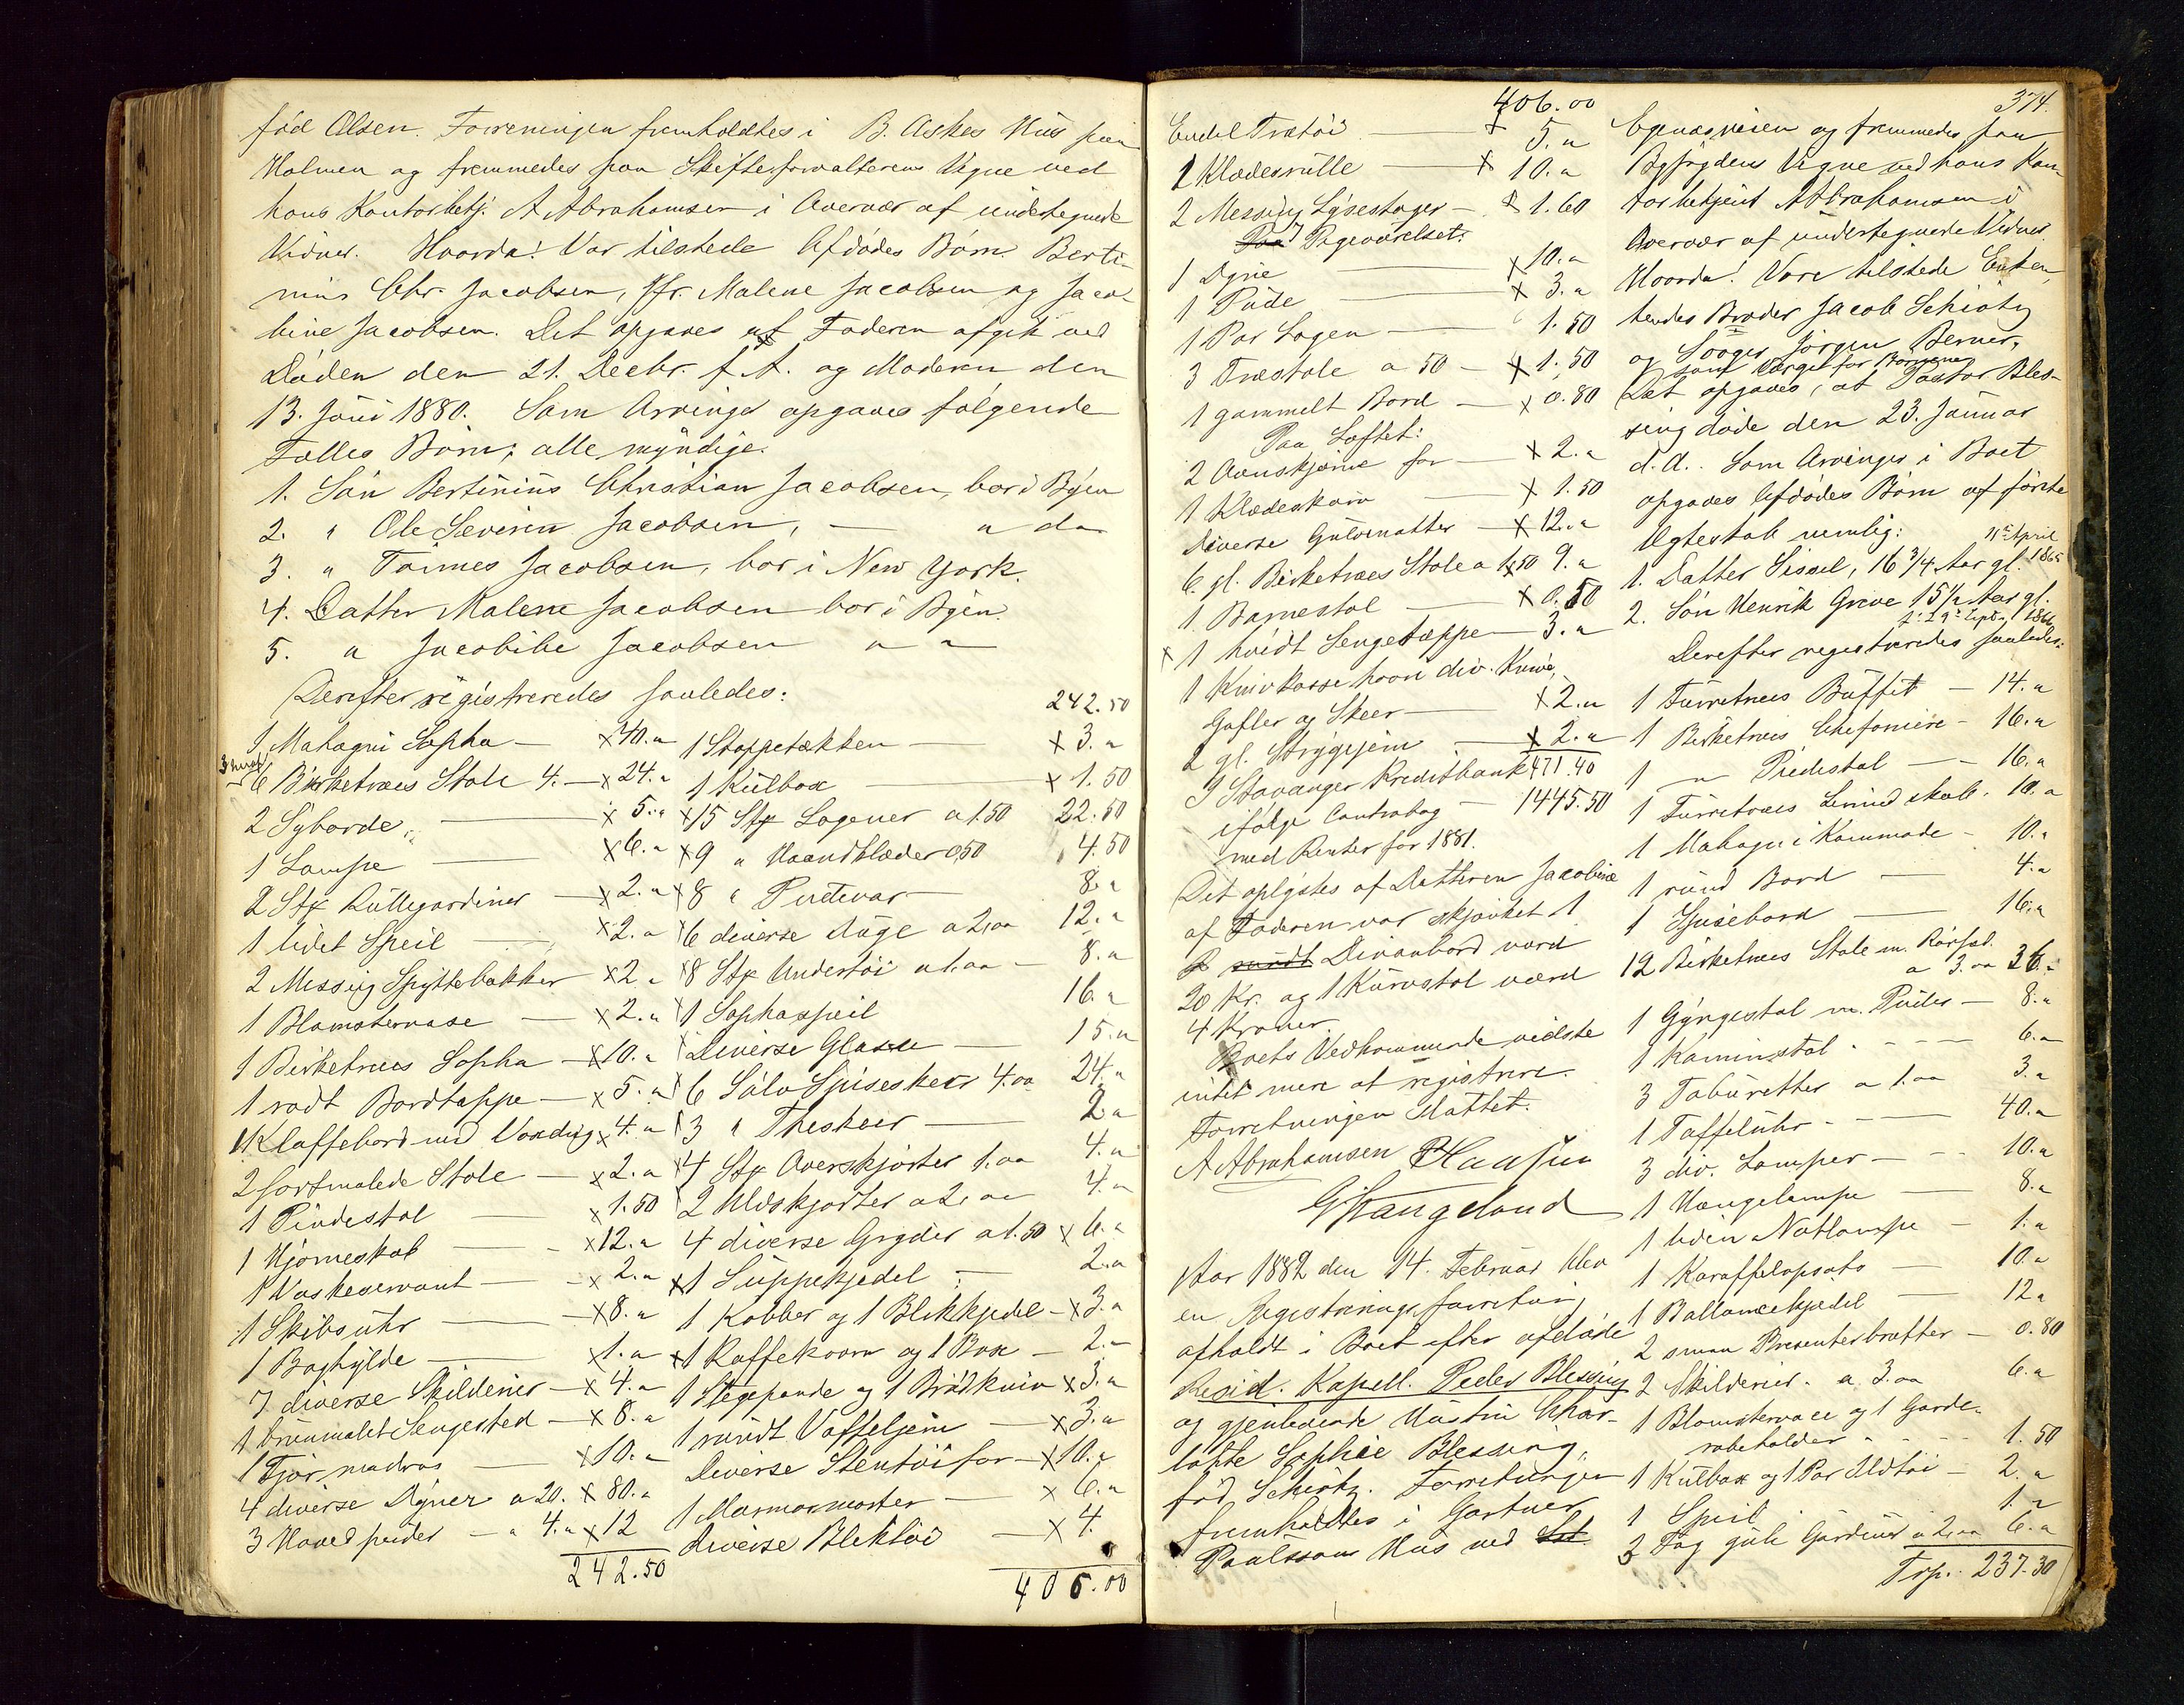 fød Olsen. Forreningen fremholdtes i B. Askes Hus paa
Holmen og fremmedes paa Skifteforvalterens Vegne ved
hans Kontorbetj. A Abrahamsen i Overvær af undertegnede
Vidner. Hvorda! Var tilstede Afdødes Børn Berti-
nius Chr. Jacobsen, Jfr. Malene Jacobsen og Jaco-
bine Jacobsen. Det opgaves at Faderen afgik ved
Døden den 21. Decbr. f. A. og Moderen den
13. Juni 1880. Som Arvinger opgaves følgende
Fælles Børn; alle myndige.
1. Søn Bertinius Christian Jacobsen, bor i Byen
2. " Ole Severin Jacobsen, — " do
3. " Tønnes Jacobsen, bor i New York.
4. Datter Malene Jacobsen bor i Byen.
5. " Jacobine Jacobsen " "
Derefter registreredes saaledes:
1 Mahagni Sopha — x 40. "
6 Birketræes Stole 4. — x 24. "
2 Syborde — x 5. "
1 Lampe — x 6. "
2 Stk Rullegardiner — x 2. "
1 lidet Speil — x 2. "
2 Messing Spyttebakker x 2 "
1 Blomstervase — x 2. "
1 Birketræes Sopha — x 10. "
1 rødt Bordtæppe — x 5. "
1 Klaffebord med Voxdug x 4. "
2 sortmalede Stole — x 2. "
1 Pindestol — x 1.50
1 Hjørneskab — x 12. "
1 Vaskeservant — x 2. "
1 Skibsuhr — x 8. "
1 Boghylde — x 1. "
7 diverse Skilderier — x 4. "
1 brunmalet Sengested — x 8. "
1 Fjør madras — x 10. "
4 diverse Dyner a 20. x 80. "
3 Hovedpuder — a 4. " x 12
242.50
242.50
1 Stoppetækken — x 3. "
1 Kulbox — x 1.50
x 15 Stk Lagener a 1.50 22.50
x 9 " Haandklæder 0,50 4.50
x 8 " Pudevar — 8. "
x 6 diverse Duge a 2,00 12. "
x 8 Stk Undertøi a 1.00 — 8. "
x 1 Sophaspeil 16. "
x Diverse Glasse — 15. "
x 6 Sølv Spiseskeer 4.00 24. "
x 3 " Theskeer — 2 "
x 4 Stk Overskjorter 1.00 4. "
x 2 Uldskjorter a 2,00 4. "
4 diverse Gryder a 1.50 x 6. "
x 1 Suppekjedel — 2. "
1 Kobber og 1 Blikkjedel — x 3. "
x 1 Kaffekværn og 1 Box — 2. "
1 Stegepande og 1 Brødkniv x 3. "
1 rundt Vaffeljern — x 3. "
Diverse Stentøi for — x 10. "
1 Marmormorter — x 6. "
diverse Bliktøi — x 4.
406.00
406.00
Endel Trætøi — x 5. "
1 Klædesrulle — x 10. "
2 Messing Lysestager — x 1.60
Paa Pigeværelset:
1 Dyne — x 10. "
1 Pude — x 3. "
1 Par Lagen — 1.50
3 Træstole a 50 — x 1.50
1 gammelt Bord — x 0.80
Paa Loftet:
2 Ovnskjærme for — x 2. "
1 Klædeskurv — x 1.50
diverse Gulvmatter — x 12. "
6 gl. Birketræes Stole a 1,50 9. "
1 Barnestol — x 0.50
x 1 hvidt Sengetæppe — 3. "
1 Knivkasse hvori div. Knive,
Gafler og Skeer — x 2. "
2 gl. Strygejern — x 2. "
471.40
I Stavanger Kreditbank
ifølge Contrabog — 1445.50
med Renter for 1881.
Det oplystes af Datteren Jacobine
at Faderen var skjænket 1
rundt Divanbord værd
20 Kr. og 1 Kurvstol værd
4 Kroner.
Boets Vedkommende vidste
intet mere at registrere.
Forretningen sluttet.
A Abrahamsen PHansen
GHaugeland
Aar 1882 den 14. Februar blev
en Registreringsforretning
afholdt i Boet efter afdøde
Resid. Kapell. Peder Blessing
og gjenlevende Hustru Char-
lotte Sophie Blessing,
fød Schiøtz. Forretningen
fremholdtes i Gartner
Paulssons Hus ved
374.
Egenæsveien og fremmedes paa
Byfogdens Vegne ved hans Kon
torbetjent A Abrahamsen i
Overvær af undertegnede Vidner.
Hvorda! Vare tilstede Enken,
hendes Broder Jacob Schiøtz
og Svoger Jørgen Berner,
som Værge for Børnene
Det opgaves, at Pastor Bles-
sing døde den 23. Januar
d. A. Som Arvinger i Boet
opgaves Afdødes Børn af første
Ægteskab nemlig:
11te April
1. Datter Sissel, 16 3/4 Aar gl. 1865
2. Søn Henrik Greve 15 1/2 Aar gl.
f. 29 Sept. 1866
Derefter registreredes saaledes:
1 Furretræes Buffet — 14. "
1 Birketræes Chefoniere — 16. "
1 — " Piedestal — 16. "
1 Furretræes Linned skab. 10. "
1 Mahogni Kommode — 10. "
1 rund Bord — 4. "
1 Spisebord — 16. "
12 Birketræes Stole m. Rørsæd.
a 3.00 36. "
1 Gyngestol m. Puder — 8. "
1 Kaminstol — 6. "
3 Tabouretter a 1.00 3. "
1 Taffeluhr — 40. "
3 div. Lamper — 10. "
1 Hængelampe — 8. "
1 liden Natlampe — 1. "
1 Karaffelopsats — 10. "
1 Ballancekjedel — 12 "
2 smaa Presenterbrætter — 0.80
2 Skilderier. a 3.00 6. "
1 Blomstervase og 1 Garde-
robeholder — 1.50
1 Kulbox og 1 Par Ildtøi — 2. "
1 Speil — 1. "
3 Fag gule Gardiner a 2,00 6. "
Trp. 237.30